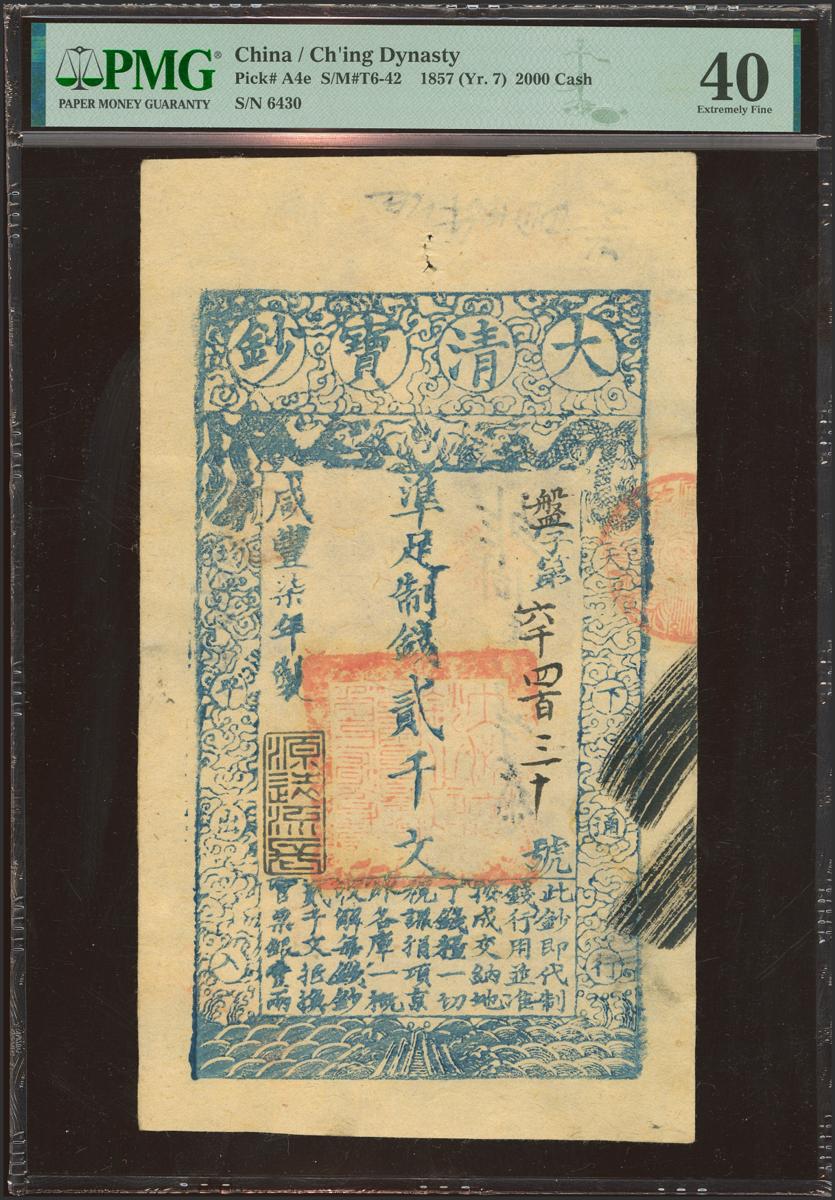 PMG®
PAPER MONEY GUARANTY
China / Ch'ing Dynasty
Pick# A4e S/M#T6-42 1857 (Yr. 7) 2000 Cash
S/N 6430
40
Extremely Fine
大清寶鈔
天下通行
均平出入
盤字第六千四百三十號
準足制錢貳千文
咸豐柒年製
此鈔即代制
錢行用並准
按成交納地
丁錢糧一切
稅課捐項京
外各庫一概
收解每錢鈔
貳千文抵換
官票銀壹兩